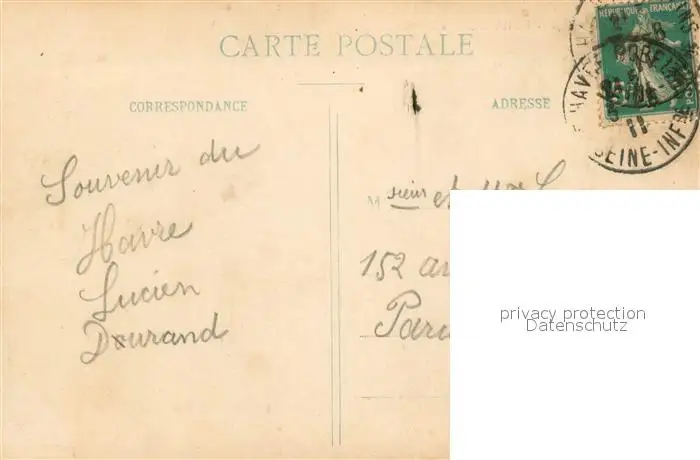 CARTE POSTALE
CORRESPONDANCE
ADRESSE
RÉPUBLIQUE FRANÇAISE
HAVRE
11
SEINE-INF
Souvenir du
Havre
Lucien
Durand
Msieur et
152 av
Paris
privacy protection
Datenschutz